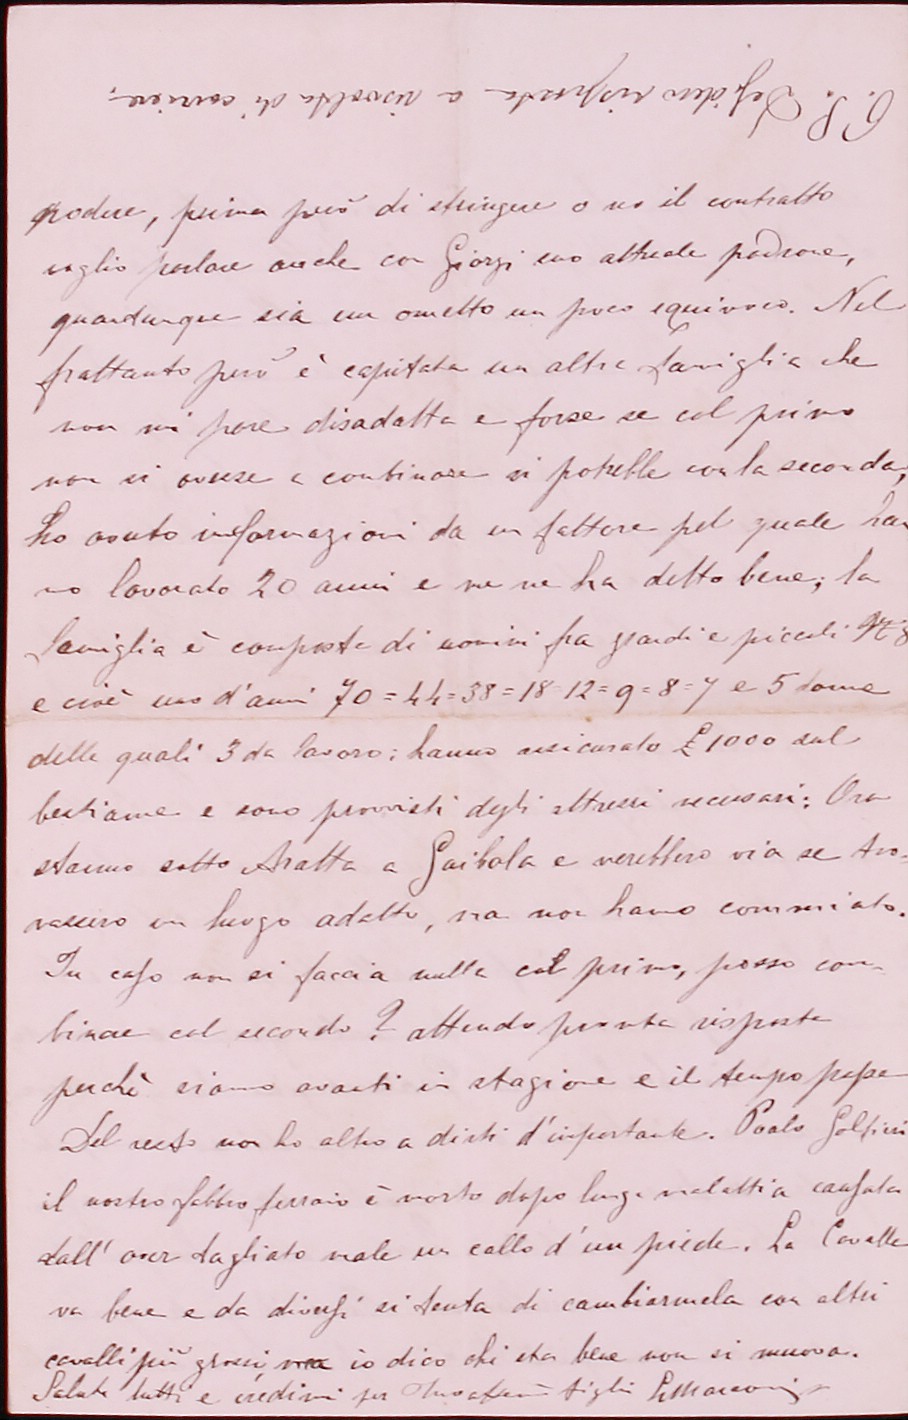 P.S. Desidero risposta a rivolta di corriere.
podere, prima però di stringere o no il contratto
voglio parlare anche con Giorgi suo attuale padrone,
quantunque sia un ometto un poco equivoco. Nel
frattanto però è capitata un altra famiglia che
non mi pare disadatta e forse se col primo
non si avesse a combinare si potrebbe con la seconda,
ho avuto informazioni da un fattore pel quale han
no lavorato 20 anni e me ne ha detto bene; la
famiglia è composta di uomini fra grandi e piccoli N 8
e cioè uno d'anni 70 = 44 = 38 = 18 = 12 = 9 = 8 = 7 e 5 donne
delle quali 3 da lavoro; hanno assicurato £ 1000 sul
bestiame e sono provvisti degli attrezzi necessari; Ora
stanno sotto Aratta a Gaibola e verebbero via se tro-
vassero un luogo adatto, ma non hanno commiato.
In caso non si faccia nulla col primo, posso com-
binare col secondo? attendo pronta risposta
perchè siamo avanti in stagione e il tempo passa
Del resto non ho altro a dirti d'importante. Paolo Golfieri
il nostro fabbro ferraio è morto dopo lunga malattia causata
dall' aver tagliato male un callo d'un piede. La Cavalla
va bene e da diversi si tenta di cambiarmela con altri
cavalli più grossi ma io dico chi sta bene non si muova.
Saluta tutti e credimi per figli